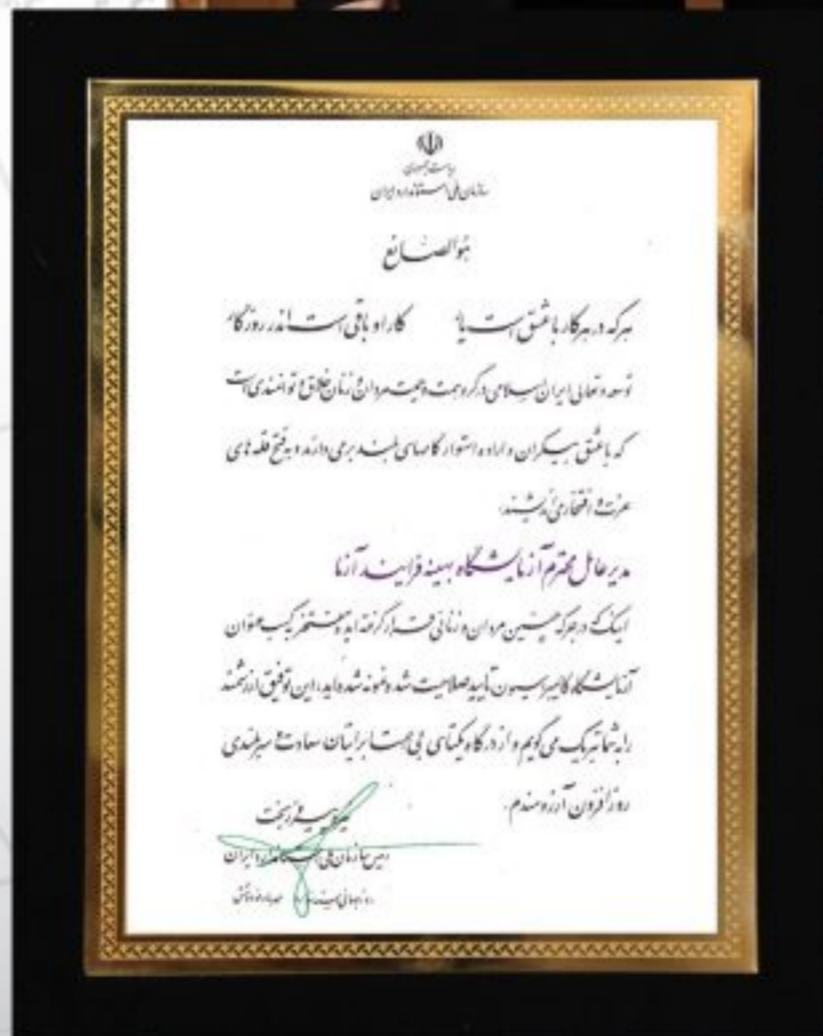 ریاست جمهوری
سازمان ملی استاندارد ایران
هوالصانع
هر که در هر کار با عشق است یار کار او باقی است اندر روزگار
توسعه و تعالی ایران اسلامی در گرو همت و حمیت مردان و زنان خلاق و توانمندی است
که با عشق بیکران و اراده استوار گامهای بلند برمی دارند و به فتح قله های
عزت و افتخار می اندیشند.
مدیر عامل محترم آزمایشگاه بهینه فرایند آزما
اینک که در جرگه چنین مردان و زنانی قرار گرفته اید و مفتخر به کسب عنوان
آزمایشگاه کالیبراسیون تأیید صلاحیت شده نمونه شده اید، این توفیق ارزشمند
را به شما تبریک می گویم و از درگاه یکتای بی همتا برایتان سعادت و سربلندی
روز افزون آرزومندم.
نیره پیروزبخت
رئیس سازمان ملی استاندارد ایران
روز جهانی استاندارد